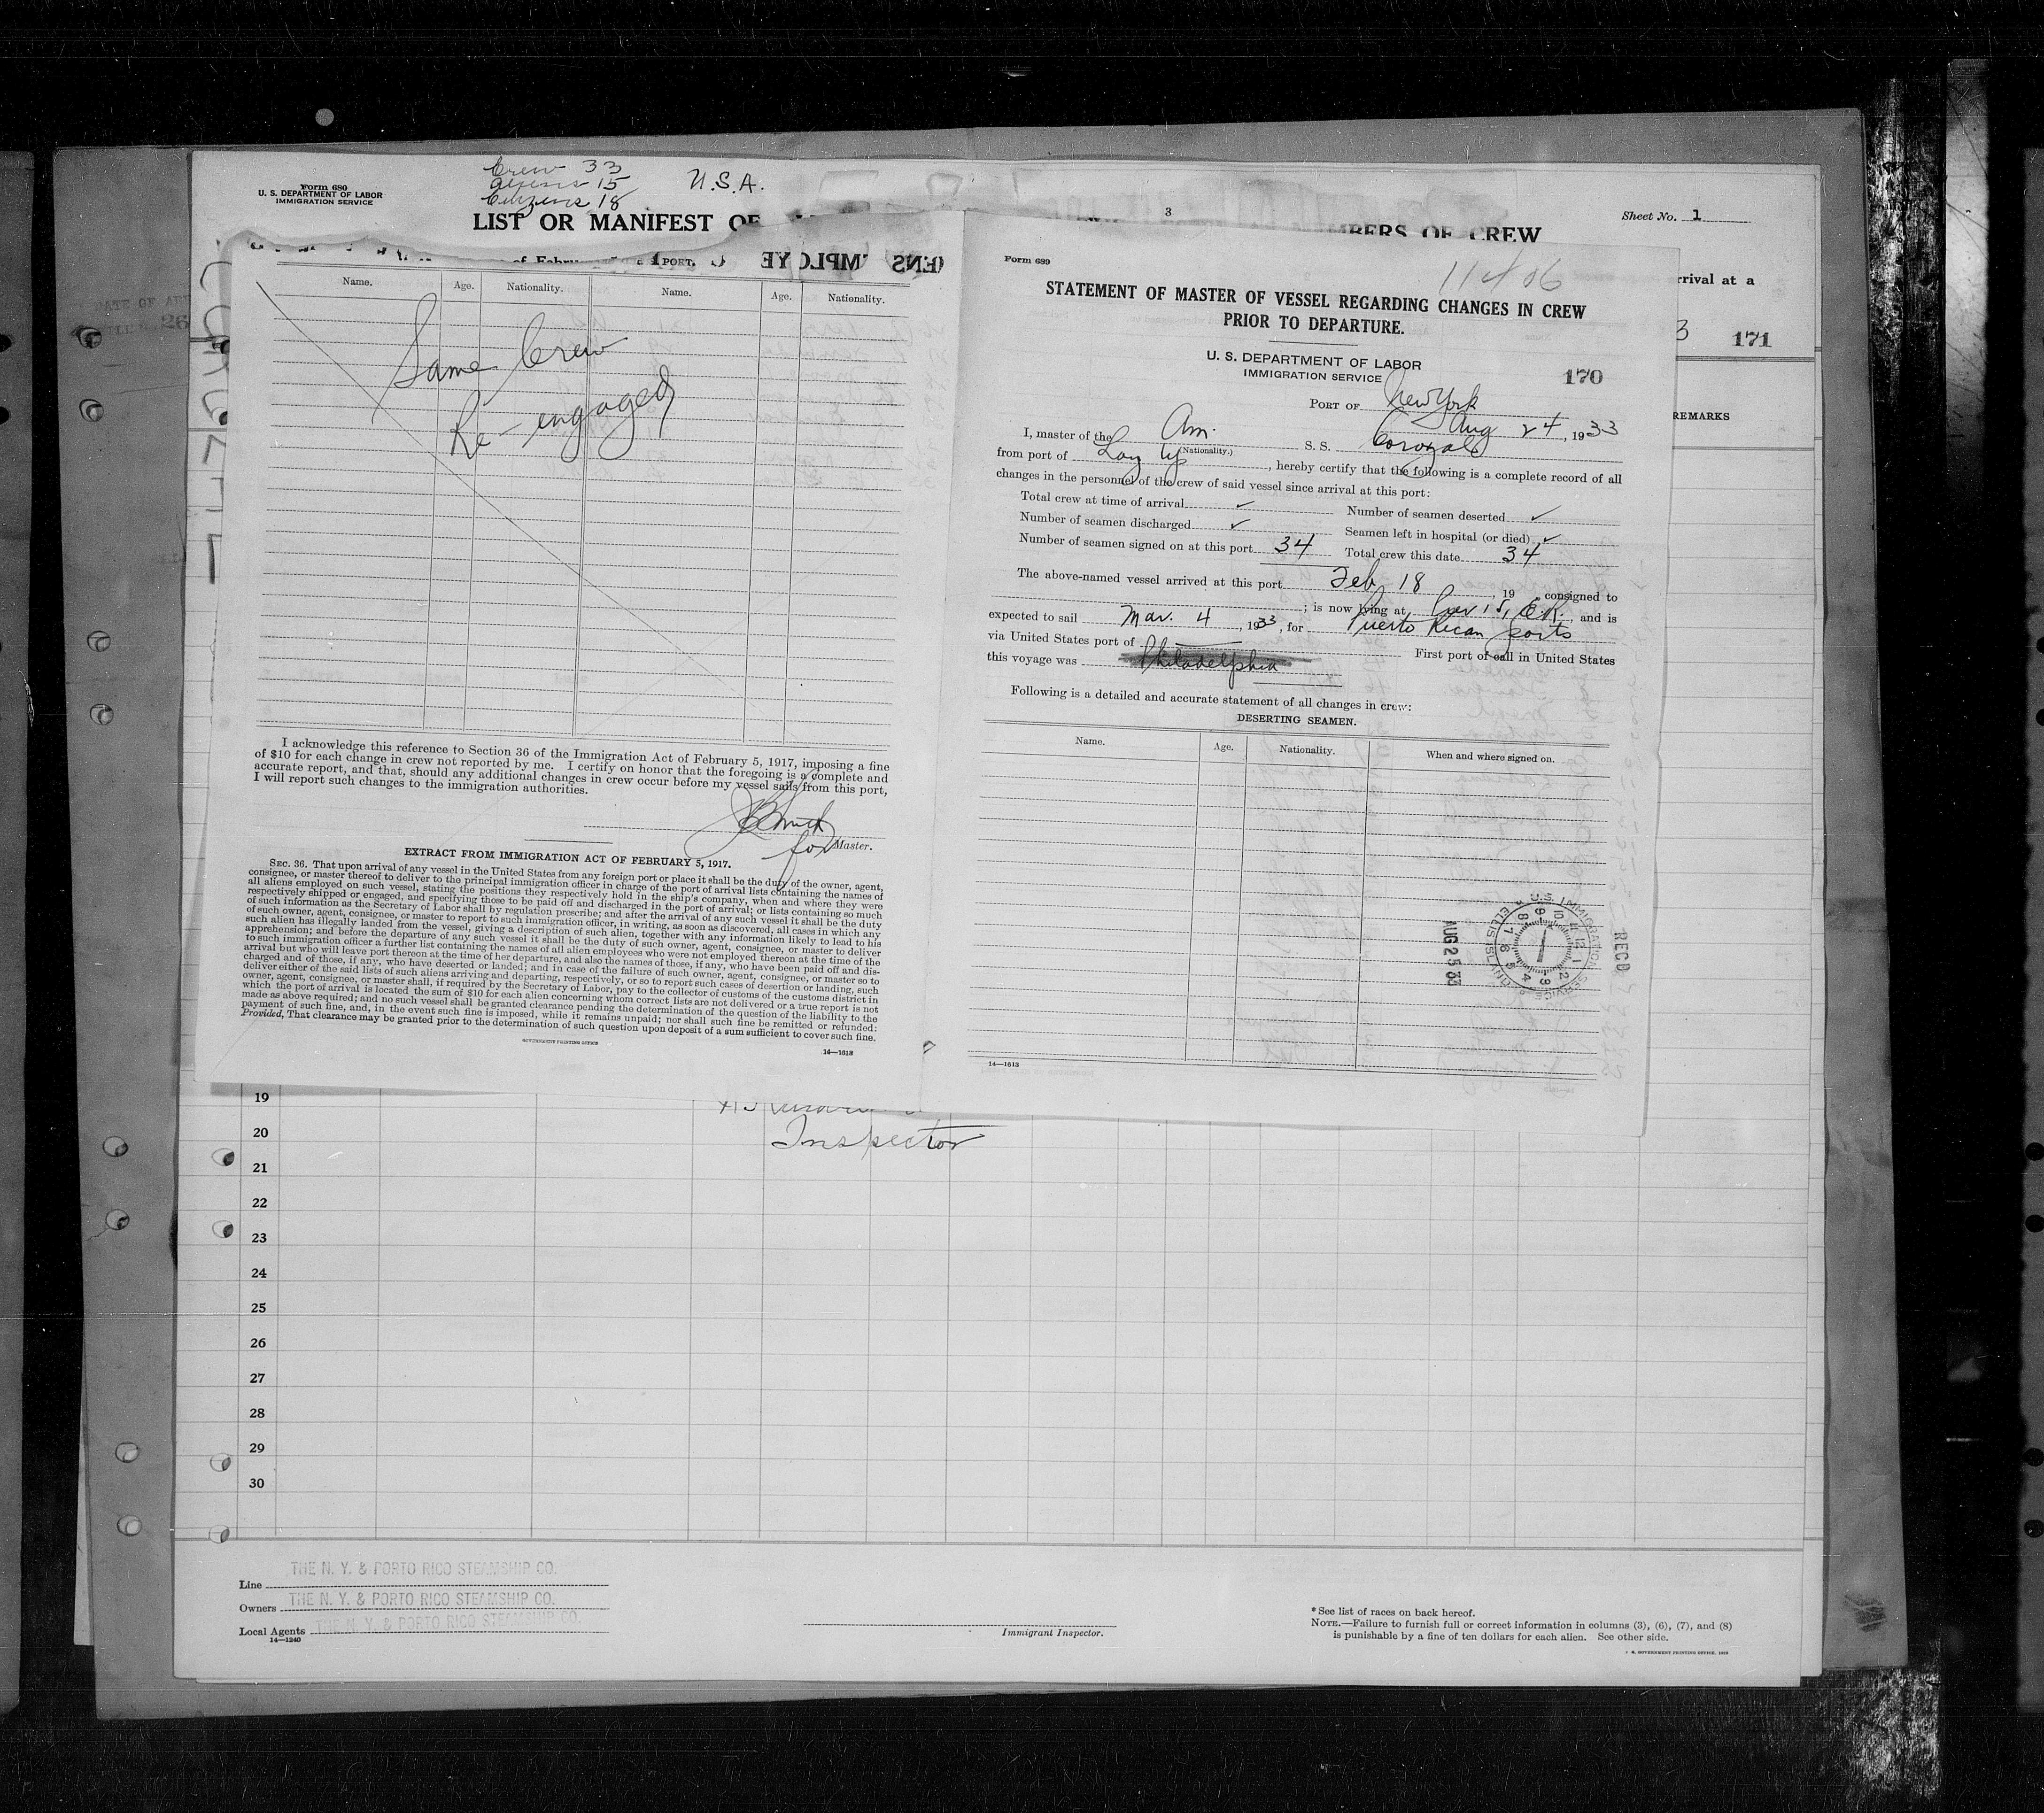 Form 680
U. S. DEPARTMENT OF LABOR
IMMIGRATION SERVICE
Crew 33
Aliens 15
Citizens 18
U.S.A.
LIST OR MANIFEST OF
3
MBERS OF CREW
Sheet No. 1
rrival at a
3 171
REMARKS
of Febru
PORT.
Name. Age. Nationality. Name. Age. Nationality.
Same Crew
Re-engaged
I acknowledge this reference to Section 36 of the Immigration Act of February 5, 1917, imposing a fine
of $10 for each change in crew not reported by me. I certify on honor that the foregoing is a complete and
accurate report, and that, should any additional changes in crew occur before my vessel sails from this port,
I will report such changes to the immigration authorities.
for Master.
EXTRACT FROM IMMIGRATION ACT OF FEBRUARY 5, 1917.
SEC. 36. That upon arrival of any vessel in the United States from any foreign port or place it shall be the duty of the owner, agent,
consignee, or master thereof to deliver to the principal immigration officer in charge of the port of arrival lists containing the names of
all aliens employed on such vessel, stating the positions they respectively hold in the ship's company, when and where they were
respectively shipped or engaged, and specifying those to be paid off and discharged in the port of arrival; or lists containing so much
of such information as the Secretary of Labor shall by regulation prescribe; and after the arrival of any such vessel it shall be the duty
of such owner, agent, consignee, or master to report to such immigration officer, in writing, as soon as discovered, all cases in which any
such alien has illegally landed from the vessel, giving a description of such alien, together with any information likely to lead to his
apprehension; and before the departure of any such vessel it shall be the duty of such owner, agent, consignee, or master to deliver
to such immigration officer a further list containing the names of all alien employees who were not employed thereon at the time of the
arrival but who will leave port thereon at the time of her departure, and also the names of those, if any, who have been paid off and dis-
charged and of those, if any, who have deserted or landed; and in case of the failure of such owner, agent, consignee, or master so to
deliver either of the said lists of such aliens arriving and departing, respectively, or so to report such cases of desertion or landing, such
owner, agent, consignee, or master shall, if required by the Secretary of Labor, pay to the collector of customs of the customs district in
which the port of arrival is located the sum of $10 for each alien concerning whom correct lists are not delivered or a true report is not
made as above required; and no such vessel shall be granted clearance pending the determination of the question of the liability to the
payment of such fine, and, in the event such fine is imposed, while it remains unpaid; nor shall such fine be remitted or refunded:
Provided, That clearance may be granted prior to the determination of such question upon deposit of a sum sufficient to cover such fine.
GOVERNMENT PRINTING OFFICE
14—1613
Form 689
STATEMENT OF MASTER OF VESSEL REGARDING CHANGES IN CREW
PRIOR TO DEPARTURE.
U. S. DEPARTMENT OF LABOR
IMMIGRATION SERVICE
170
PORT OF New York
Aug 24, 1933
I, master of the Am. S. S. Corozal
(Nationality.)
from port of , hereby certify that the following is a complete record of all
changes in the personnel of the crew of said vessel since arrival at this port:
Total crew at time of arrival ✓ Number of seamen deserted ✓
Number of seamen discharged ✓ Seamen left in hospital (or died) ✓
Number of seamen signed on at this port 34 Total crew this date 34
The above-named vessel arrived at this port Feb 18, 19 , consigned to
; is now lying at Pier 15, E.R., and is
expected to sail Mar. 4, 1933, for Puerto Rican ports
via United States port of First port of call in United States
this voyage was Philadelphia
Following is a detailed and accurate statement of all changes in crew:
DESERTING SEAMEN.
Name. Age. Nationality. When and where signed on.
RECD
U.S. IMMIGRATION SERVICE
ELLIS ISLAND
AUG 25 33
14—1613
19
20 Inspector
21
22
23
24
25
26
27
28
29
30
Line THE N. Y. & PORTO RICO STEAMSHIP CO.
Owners THE N. Y. & PORTO RICO STEAMSHIP CO.
Local Agents THE N. Y. & PORTO RICO STEAMSHIP CO.
14—1240
Immigrant Inspector.
* See list of races on back hereof.
NOTE.—Failure to furnish full or correct information in columns (3), (6), (7), and (8)
is punishable by a fine of ten dollars for each alien. See other side.